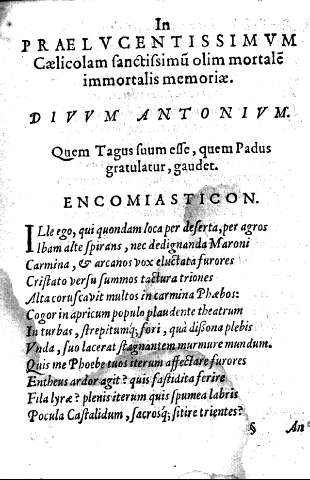 In
PRAELVCENTISSIMVM
Cælicolam sanctissimũ olim mortalẽ
immortalis memoriæ.
DIVVM ANTONIVM.
Quem Tagus suum esse, quem Padus
gratulatur, gaudet.
ENCOMIASTICON.
ILle ego, qui quondam loca per deserta, per agros
Ibam alte spirans, nec dedignanda Maroni
Carmina, & arcanos vox eluctata furores
Cristato versu summos tactura triones
Alta coruscavit multos in carmina Phœbos:
Cogor in apricum populo plaudente theatrum
In turbas, strepitumq; fori, quà disona plebis
Vnda, suo lacerat stagnantem murmure mundum.
Quis me Phoebe tuos iterum affectare furores
Entheus ardor agit? quis fastidita ferire
Fila lyræ? plenis iterum quis spumea labris
Pocula Castalidum, sacrosq; sitire trientes?
§ An